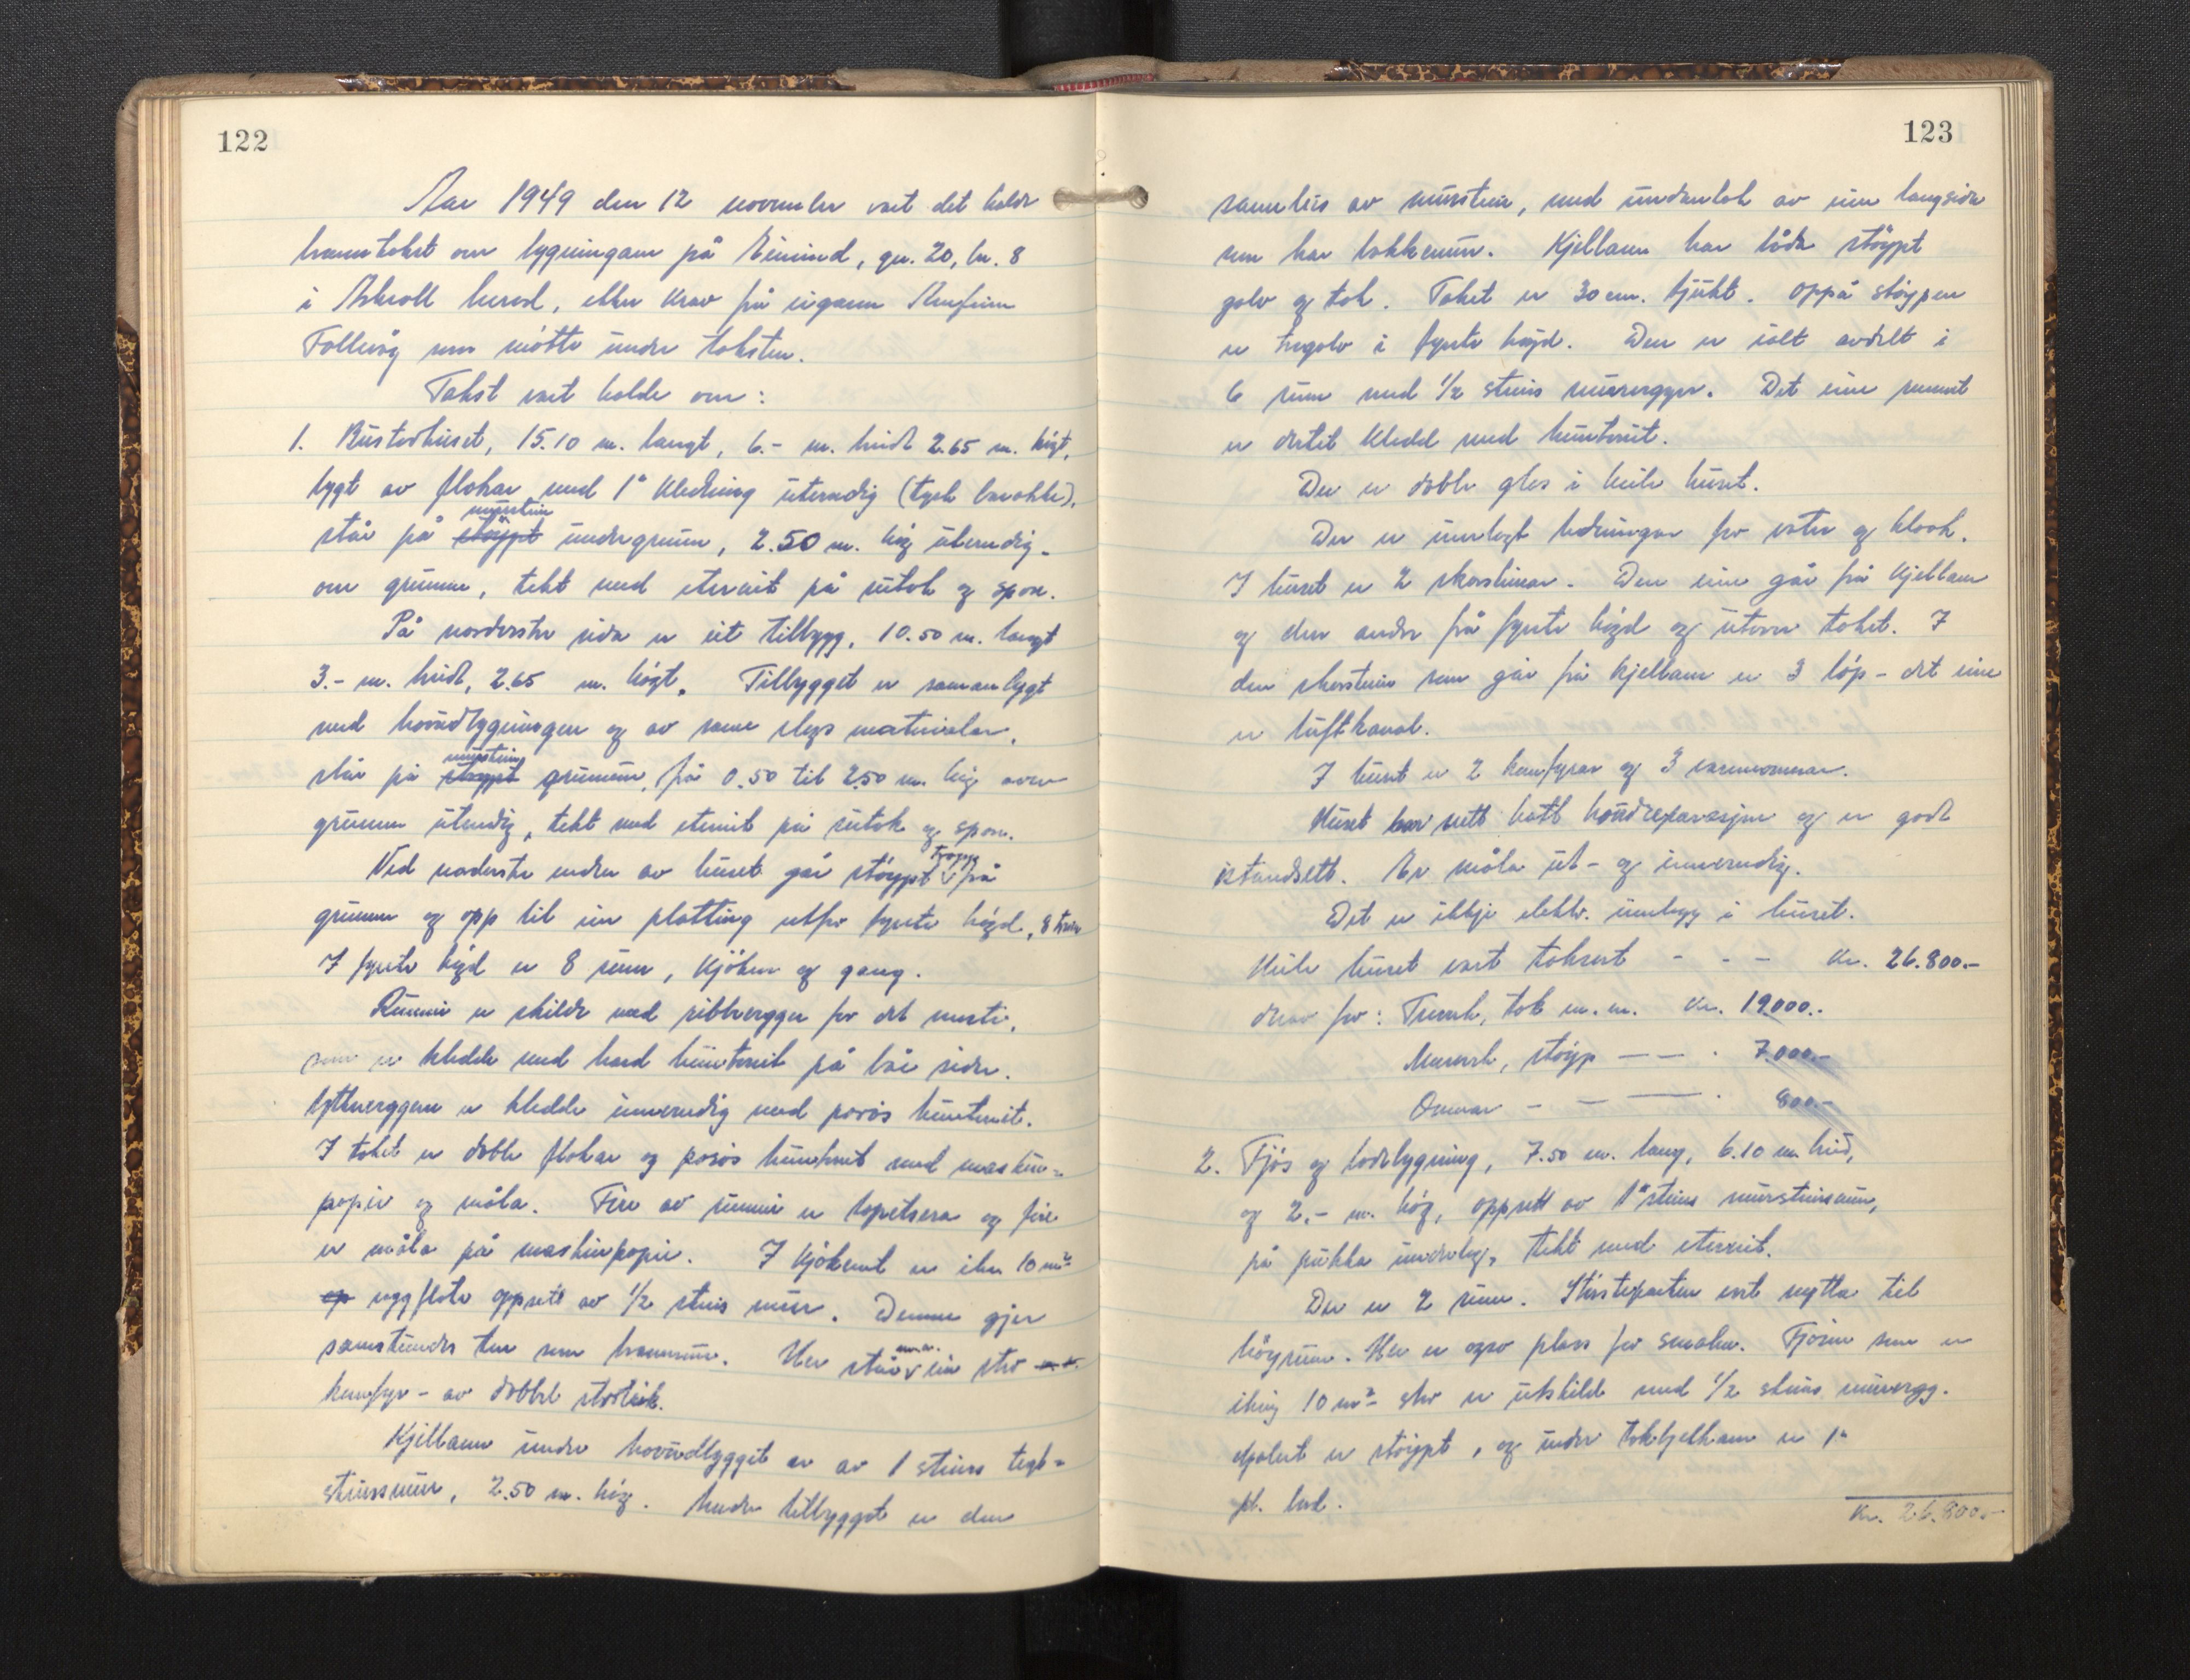 122
Aar 1949 den 12 november vart det halde
branntakst over bygningane på Eimind, gn. 20, bn. 8
i Askvoll herad, etter krav frå eigaren
Follevåg som møtte under taksten.
Takst vart halde over:
1. Bustadhuset, 15.10 m. langt, 6.- m. breidt 2.65 m. høgt,
bygt av flakar med 1" kledning utvendig (tysk barakke),
står på støypt murstein undergrunn, 2.50 m. høg utvendig
over grunnen, tekt med eternit på sutak og spon.
På nordersta sida er eit tilbygg, 10.50 m. langt
3.- m. breidt, 2.65 m. høgt. Tilbygget er samanbygt
med hovudbygningen og av same slags materialar,
står på støypt murstein grunnmur, frå 0.50 til 2.50 m. høg over
grunnen utvendig, tekt med eternit på sutak og spon.
Ved nordersta enden av huset går støypt trapp frå
grunnen og opp til ein platting utfor fyrste høgd, 8 trin
I fyrste høgd er 8 rum, kjøken og gang.
Rummi er skilde med ribbvegger for det meste,
som er kledde med hard huntonit på båe sider.
Ytterveggene er kledde innvendig med porøs huntonit.
I taket er doble flakar og porøs huntonit med maskin-
papir og måla. Fire av rummi er tapetsera og fire
er måla på maskinpapir. I kjøkenet er ikr. 10 m²
op veggflate oppsett av 1/2 steins mur. Denne gjer
samstundes ten som brannmur. Her står m.a. ein stor m.a.
komfyr - av dobbel storleik.
Kjellaren under hovudbygget er av 1 steins tegl-
steinsmur, 2.50 m. høg. Under tilbygget er den
123
sameleis av murstein, med undantak av eine langsida
som har bakkemur. Kjellaren har både støypt
golv og tak. Taket er 30 cm. tjukt. Oppå støypen
er tregolv i fyrste høgd. Den er ialt avdelt i
6 rum med 1/2 steins murvegger. Det eine rummet
er dertil kledd med huntonit.
Der er doble glas i heile huset.
Der er innlagt ledningar for vatn og kloakk.
I huset er 2 skorsteinar. Den eine går frå kjellaren
og den andre frå fyrste høgd og utover taket. I
den skorstein som går frå kjellaren er 3 løp - det eine
er luftkanal.
I huset er 2 komfyrar og 3 varmeomnar.
Huset har nett hatt hovudreparasjon og er godt
istandsett. Er måla ut- og innvendig.
Det er ikkje elektr. innlegg i huset.
Heile huset vart taksert - - - kr. 26.800.-
derav for: Treverk, tak m. m. kr. 19.000.-
Murverk, støyp — — " 7.000.-
Omnar - - — " 800.-
2. Fjøs og lødebygning, 7.50 m. lang, 6.10 m. breid,
og 2.- m. høg, oppsett av 1 steins mursteinsmur,
på pukka underlag, tekt med eternit.
Der er 2 rum. Størsteparten vert nytta til
høyrum. Her er også plass for smalen. Fjøsen som er
ikring 10 m² stor er utskild med 1/2 steins murvegg.
Golvet er støypt, og under takbjelkane er 1"
pl. bord.
Kr. 26.800.-